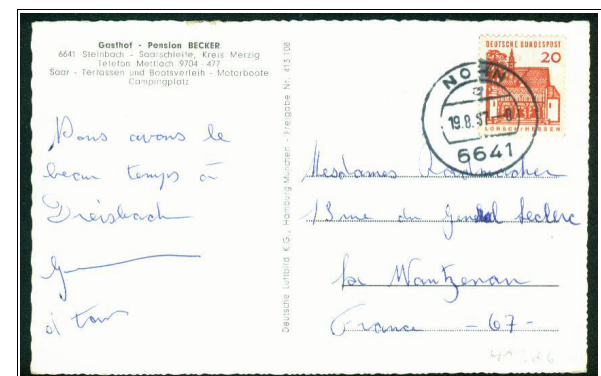 Gasthof - Pension BECKER
6641 Steinbach - Saarschleife, Kreis Merzig
Telefon Mettlach 9704 - 477
Saar - Terrassen und Bootsverleih - Motorboote
Campingplatz
Nous avons le
beau temps à
Dreisbach
Deutsche Luftbild K.G., Hamburg München - Freigabe Nr. 413 108
DEUTSCHE BUNDESPOST
20
LORSCH/HESSEN
NOHN
a
19.8.67 - 8
6641
Mesdames
13 rue du Général Leclerc
La Wantzenau
France - 67 -